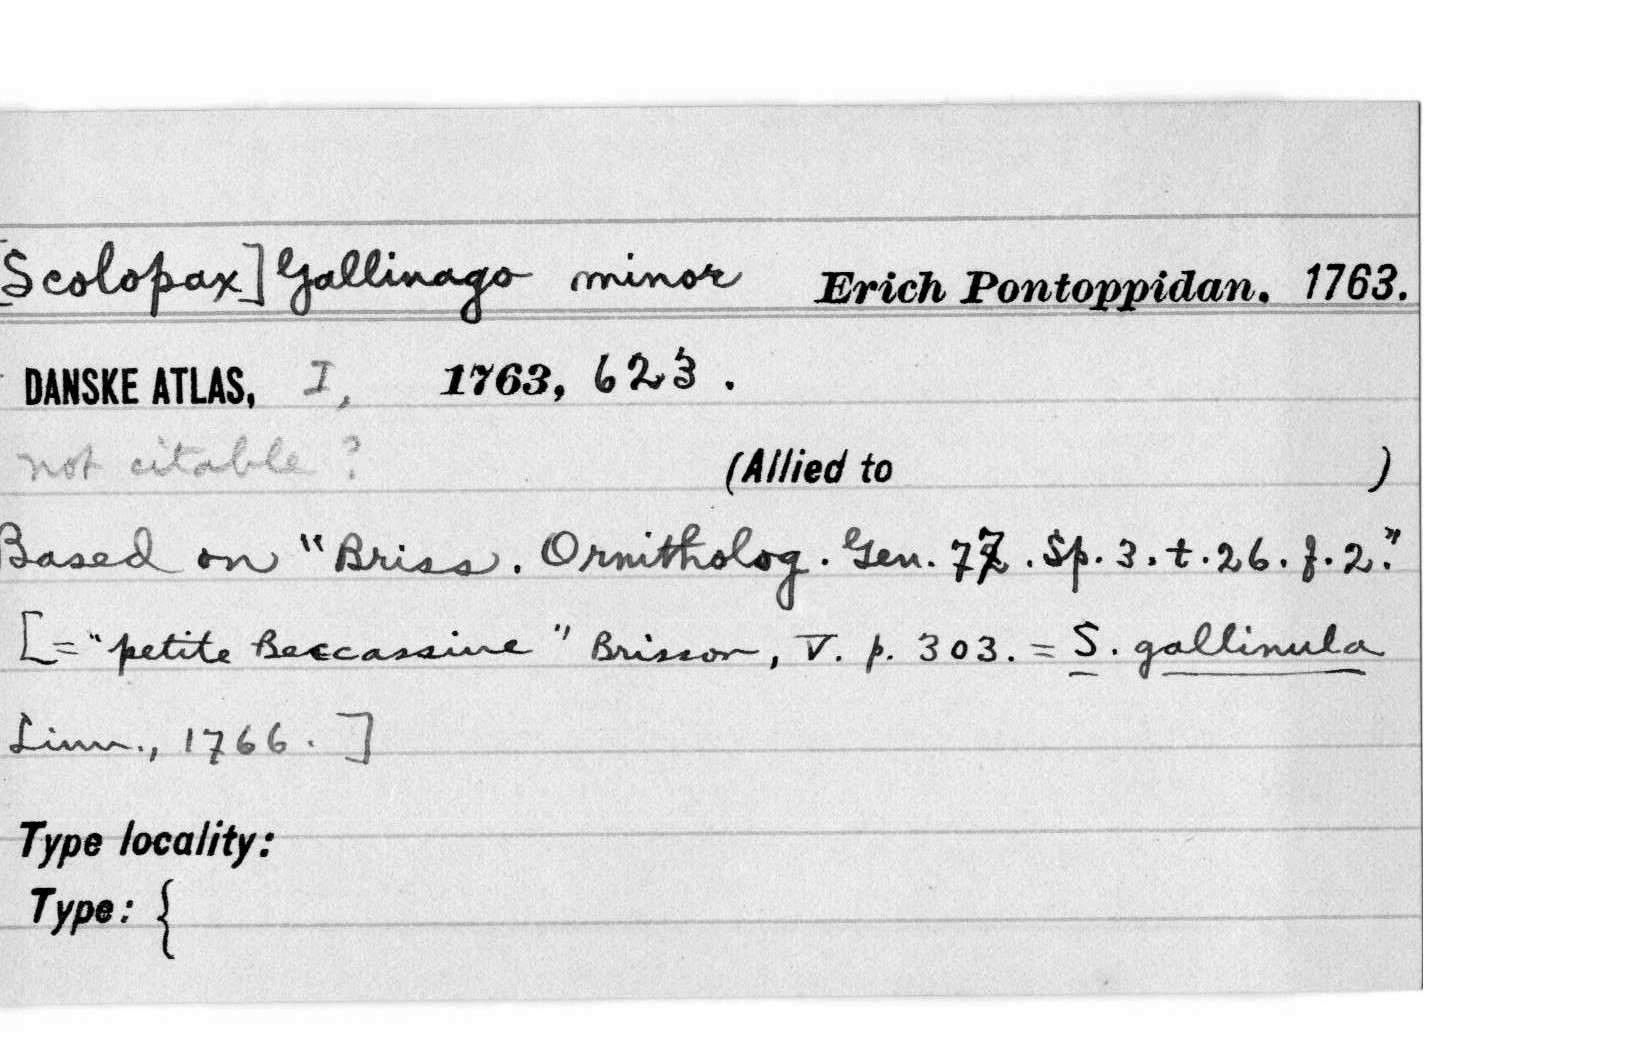 [Scolopax] Gallinago minor Erich Pontoppidan. 1763.
DANSKE ATLAS, I, 1763, 623.
not citable? (Allied to )
Based on "Briss. Ornitholog. Gen. 77. Sp. 3. t. 26. f. 2."
[= "petite Beccassine" Brisson, V. p. 303. = S. gallinula
Linn., 1766.]
Type locality:
Type: {